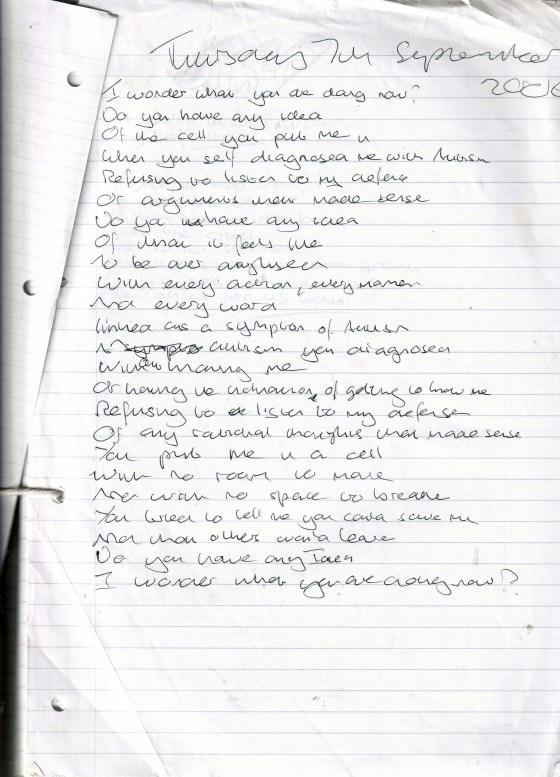 Thursday 7th September
2006
I wonder what you are doing now?
Do you have any idea
Of the cell you put me in
When you self diagnosed me with Autism
Refusing to listen to my defense
Or arguments that made sense
Do you have any idea
Of what it feels like
To be over analysed
With every action, every manner
And every word
Linked as a symptom of Autism
autism you diagnosed
Without knowing me
Or having the of getting to know me
Refusing to listen to my defense
Or any rational thoughts that made sense
You put me in a cell
With no room to move
And with no space to breathe
You tried to tell me you could save me
And that others would leave
Do you have any Idea
I wonder what you are doing now?